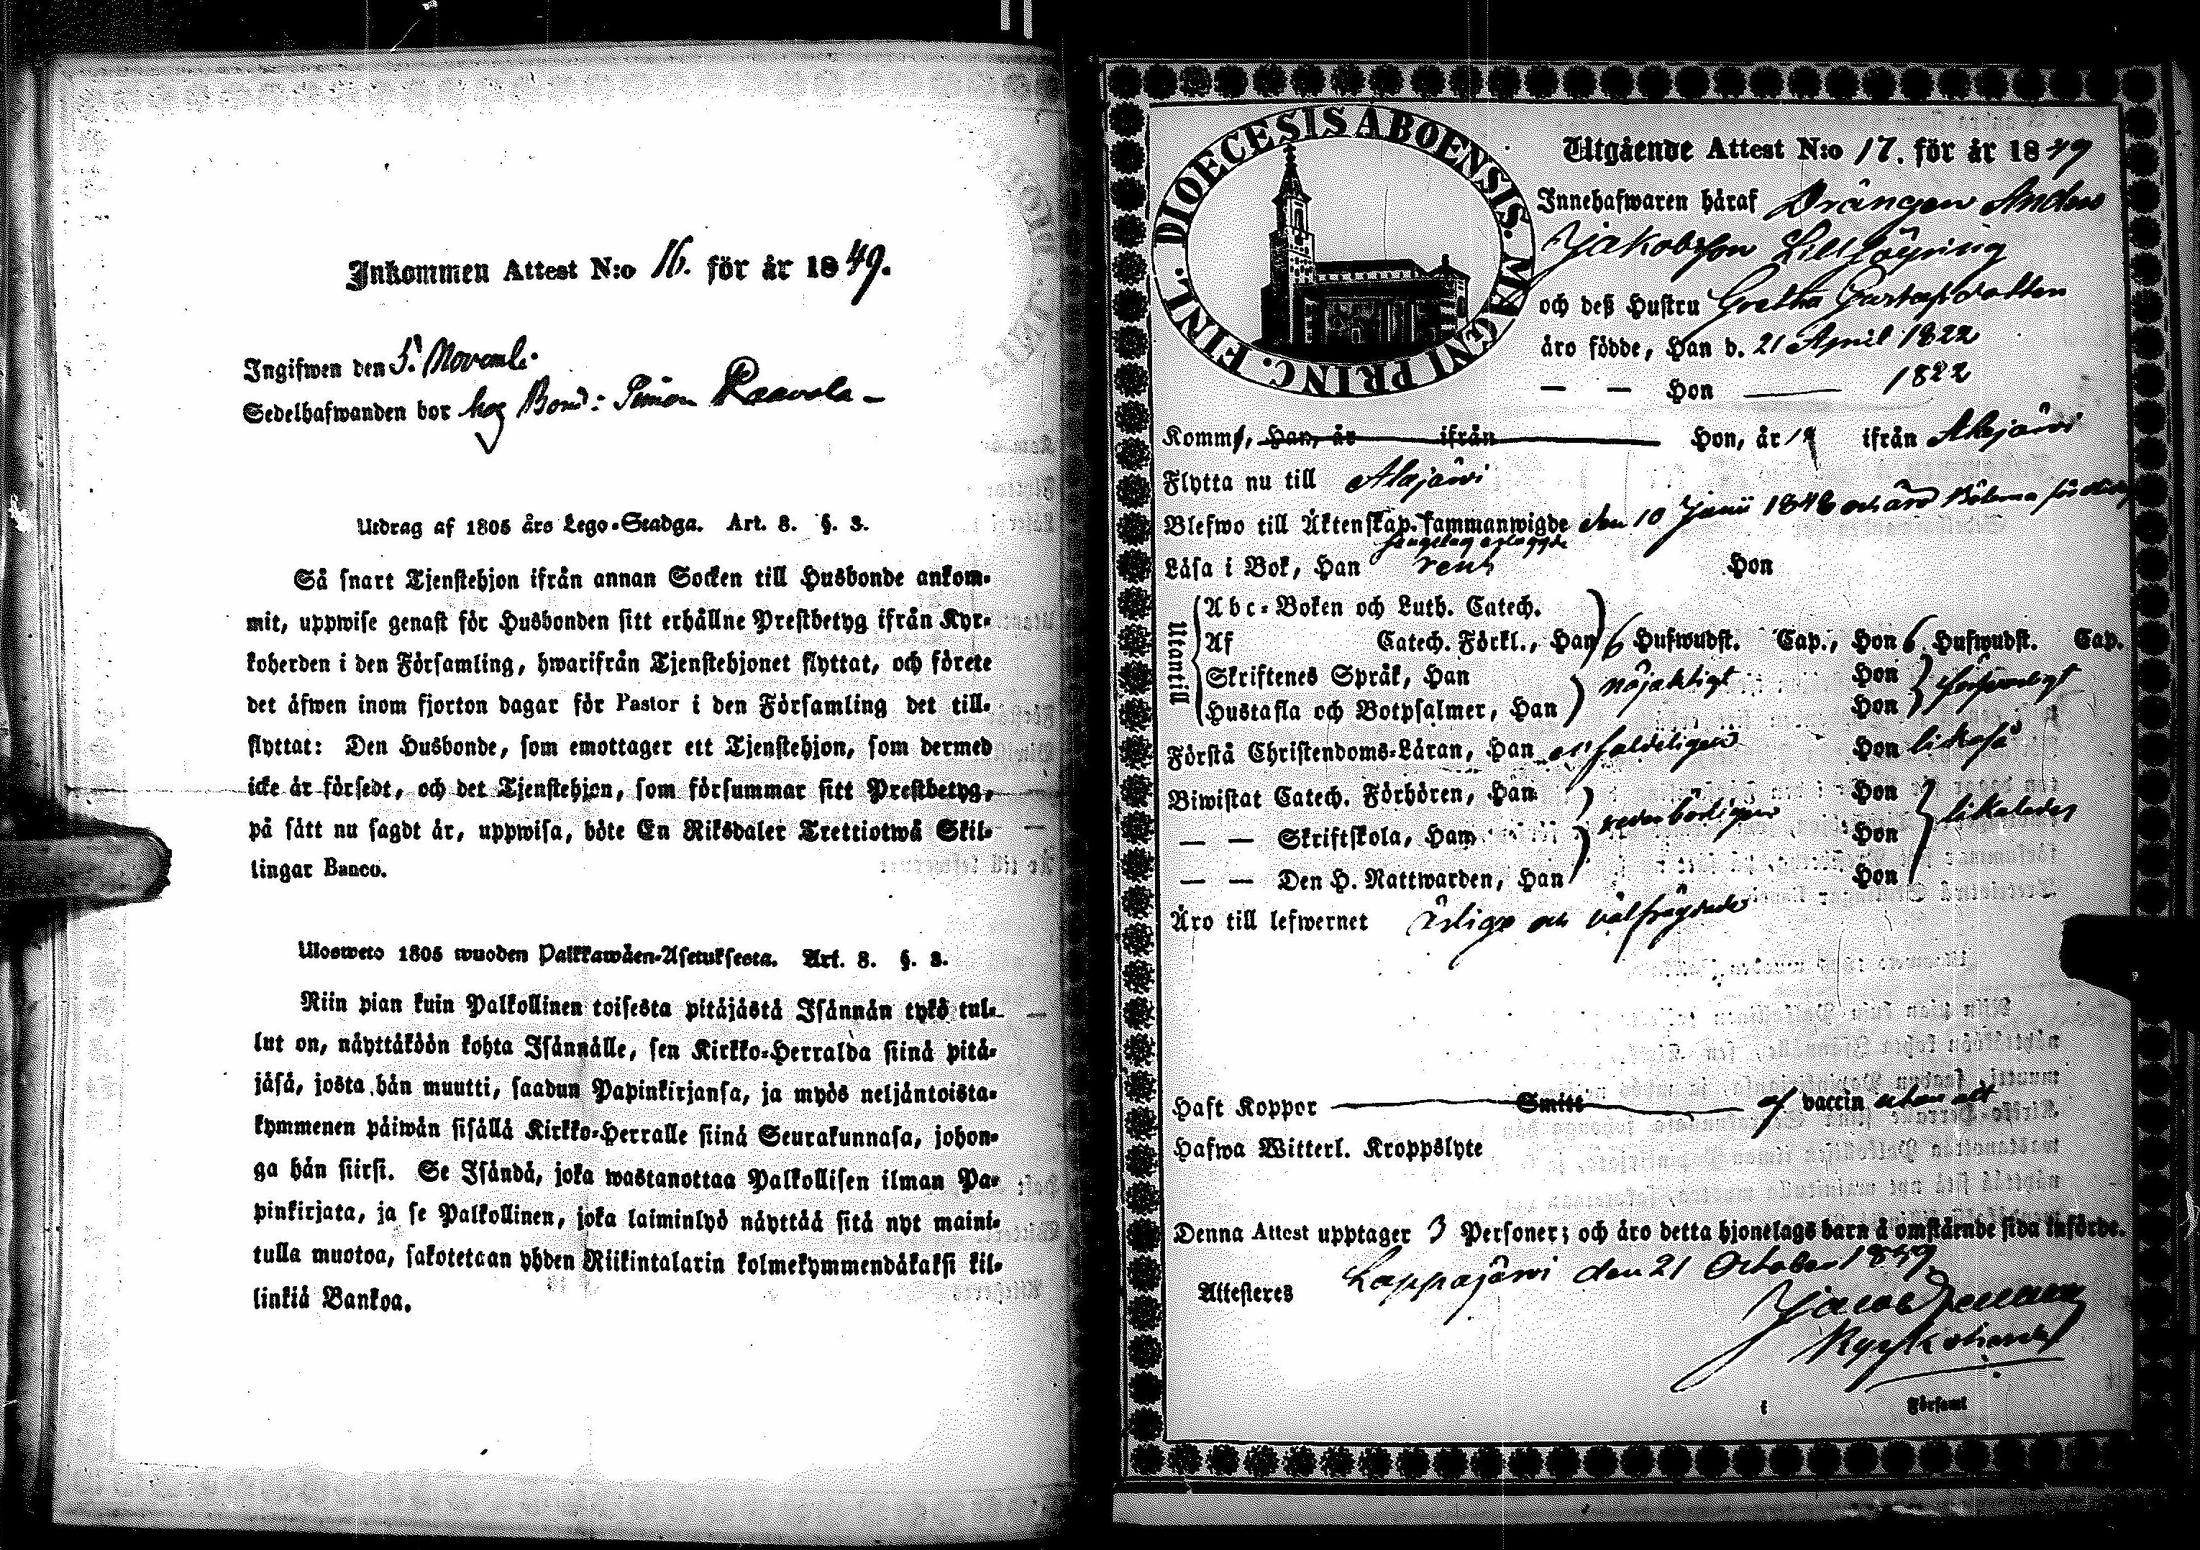 Inkommen Attest N:o 16. för år 1849.
Ingifwen den 5. Novemb:
Sedelhafwanden bor hos Bond: Simon Raavola –
Utdrag af 1805 års Lego-Stadga. Art. 8. §. 3.
Så snart Tjenstehjon ifrån annan Socken till Husbonde ankom-
mit, uppwise genast för Husbonden sitt erhållne Prestbetyg ifrån Kyr-
koherden i den Församling, hwarifrån Tjenstehjonet flyttat, och förete
det äfwen inom fjorton dagar för Pastor i den Församling det till-
flyttat: Den Husbonde, som emottager ett Tjenstehjon, som dermed
icke är försedt, och det Tjenstehjon, som försummar sitt Prestbetyg,
på sätt nu sagdt är, uppwisa, böte En Riksdaler Trettiotwå Skil-
lingar Banco.
Ulosweto 1805 wuoden Palkkawäen-Asetuksesta. Art. 8. §. 3.
Niin pian kuin Palkollinen toisesta pitäjästä Isännän tykö tul-
lut on, näyttäköön kohta Isännälle, sen Kirkko-Herralda siinä pitä-
jäsä, josta hän muutti, saadun Papinkirjansa, ja myös neljäntoista-
kymmenen päiwän sisällä Kirkko-Herralle siinä Seurakunnasa, johon-
ga hän siirsi. Se Isändä, joka wastanottaa Palkollisen ilman Pa-
pinkirjata, ja se Palkollinen, joka laiminlyö näyttää sitä nyt maini-
tulla muotoa, sakotetaan yhden Riikintalarin kolmekymmendäkaksi kil-
linkiä Bankoa.
DIOECESIS ABOENSIS. MAGNI PRINC. FINL.
Utgående Attest N:o 17. för år 1849
Innehafwaren häraf Drängen Anders
Jakobsson Lilljöping
och deß Hustru Gretha Gustafsdotter
äro födde, Han d. 21 April 1822
— — Hon — 1822
Komm, Han, år ifrån Hon, år ifrån Alajärvi
Flytta nu till Alajärvi
Blefwo till Äktenskap sammanwigde den 10 Junii 1848
Läsa i Bok, Han rent Hon
Utantill
Abc-Boken och Luth. Catech.
Af Catech. Förkl., Han 6 Hufwudst. Cap., Hon 6 Hufwudst. Cap.
Skriftenes Språk, Han nöjaktigt Hon försvarligt
Hustafla och Botpsalmer, Han Hon
Förstå Christendoms-Läran, Han enfaldeligen Hon likaså
Biwistat Catech. Förhören, Han vederbörligen Hon likaledes
— — Skriftskola, Han Hon
— — Den H. Nattwarden, Han Hon
Äro till lefwernet ärliga och välfrägdade
Haft Koppor Smitt af vaccin
Hafwa Witterl. Kroppslyte
Denna Attest upptager 3 Personer; och äro detta hjonelags barn å omstående sida införde.
Attesteras Lappajärvi den 21 October 1849.
Kyrkoherde
Församl